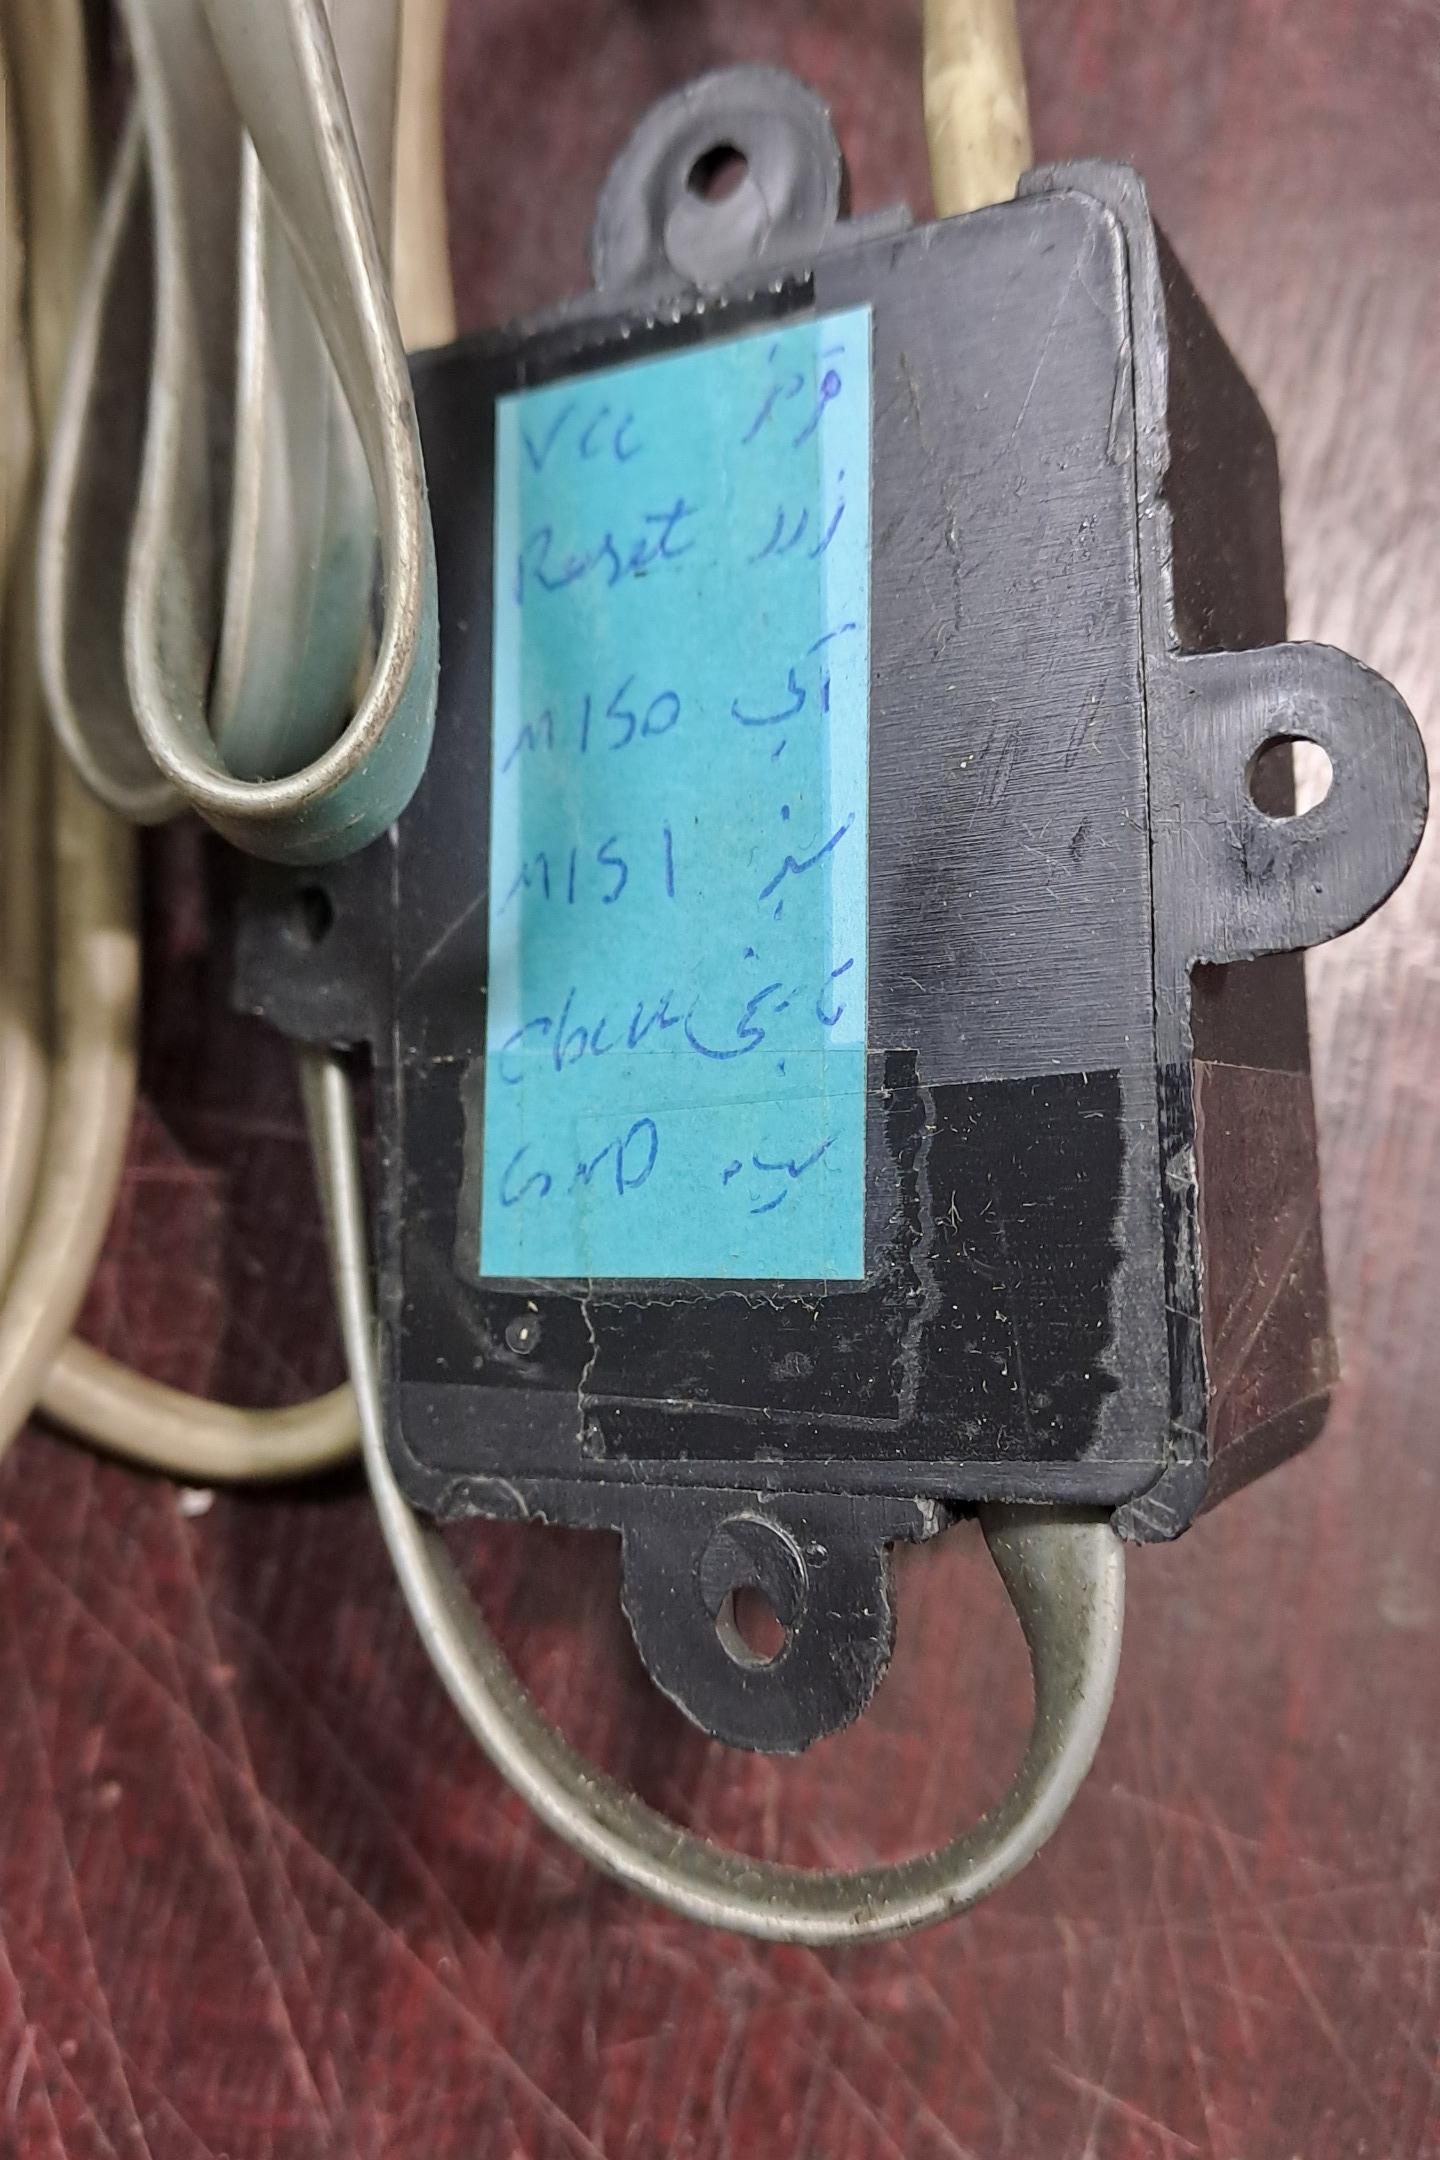 Vcc قرمز
Reset زرد
MISO آبی
MISI سبز
نارنجی
GND سیاه